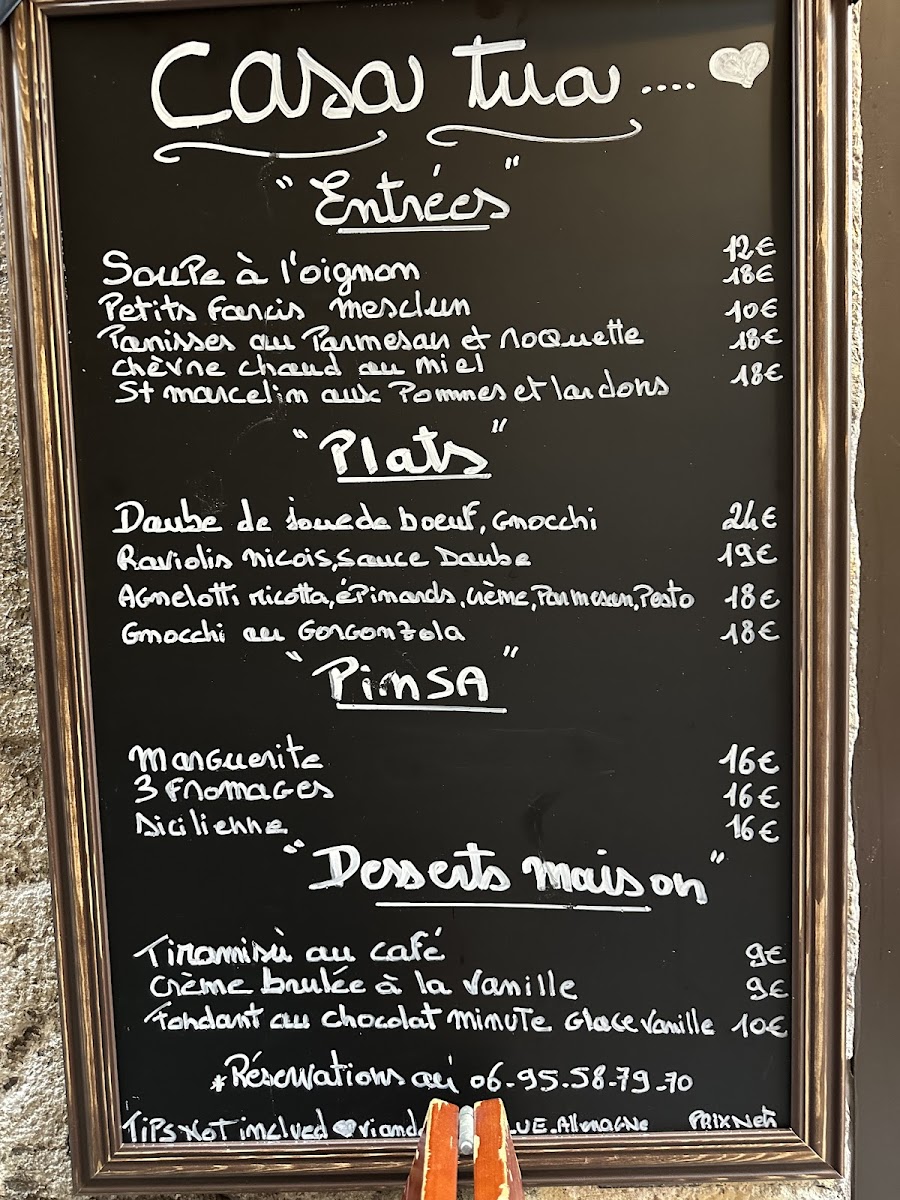 Casa Tua ....
"Entrées"
Soupe à l'oignon 12€
Petits Farcis mesclun 18€
Panisses au Parmesan et roquette 10€
chèvre chaud au miel 18€
St marcelin aux Pommes et lardons 18€
"Plats"
Daube de joue de boeuf, Gnocchi 24€
Raviolis Nicois, Sauce Daube 19€
Agnelotti ricotta, épinards, crème, Parmesan, Pesto 18€
Gnocchi au Gorgonzola 18€
"PinSA"
Marguerite 16€
3 Fromages 16€
Sicilienne 16€
"Desserts maison"
Tiramisù au café 9€
Crème brulée à la Vanille 9€
Fondant au chocolat minute Glace Vanille 10€
*Réservations au 06-95-58-79-70
TiPS NOT inclued viand UE. Allemagne PRIX Net